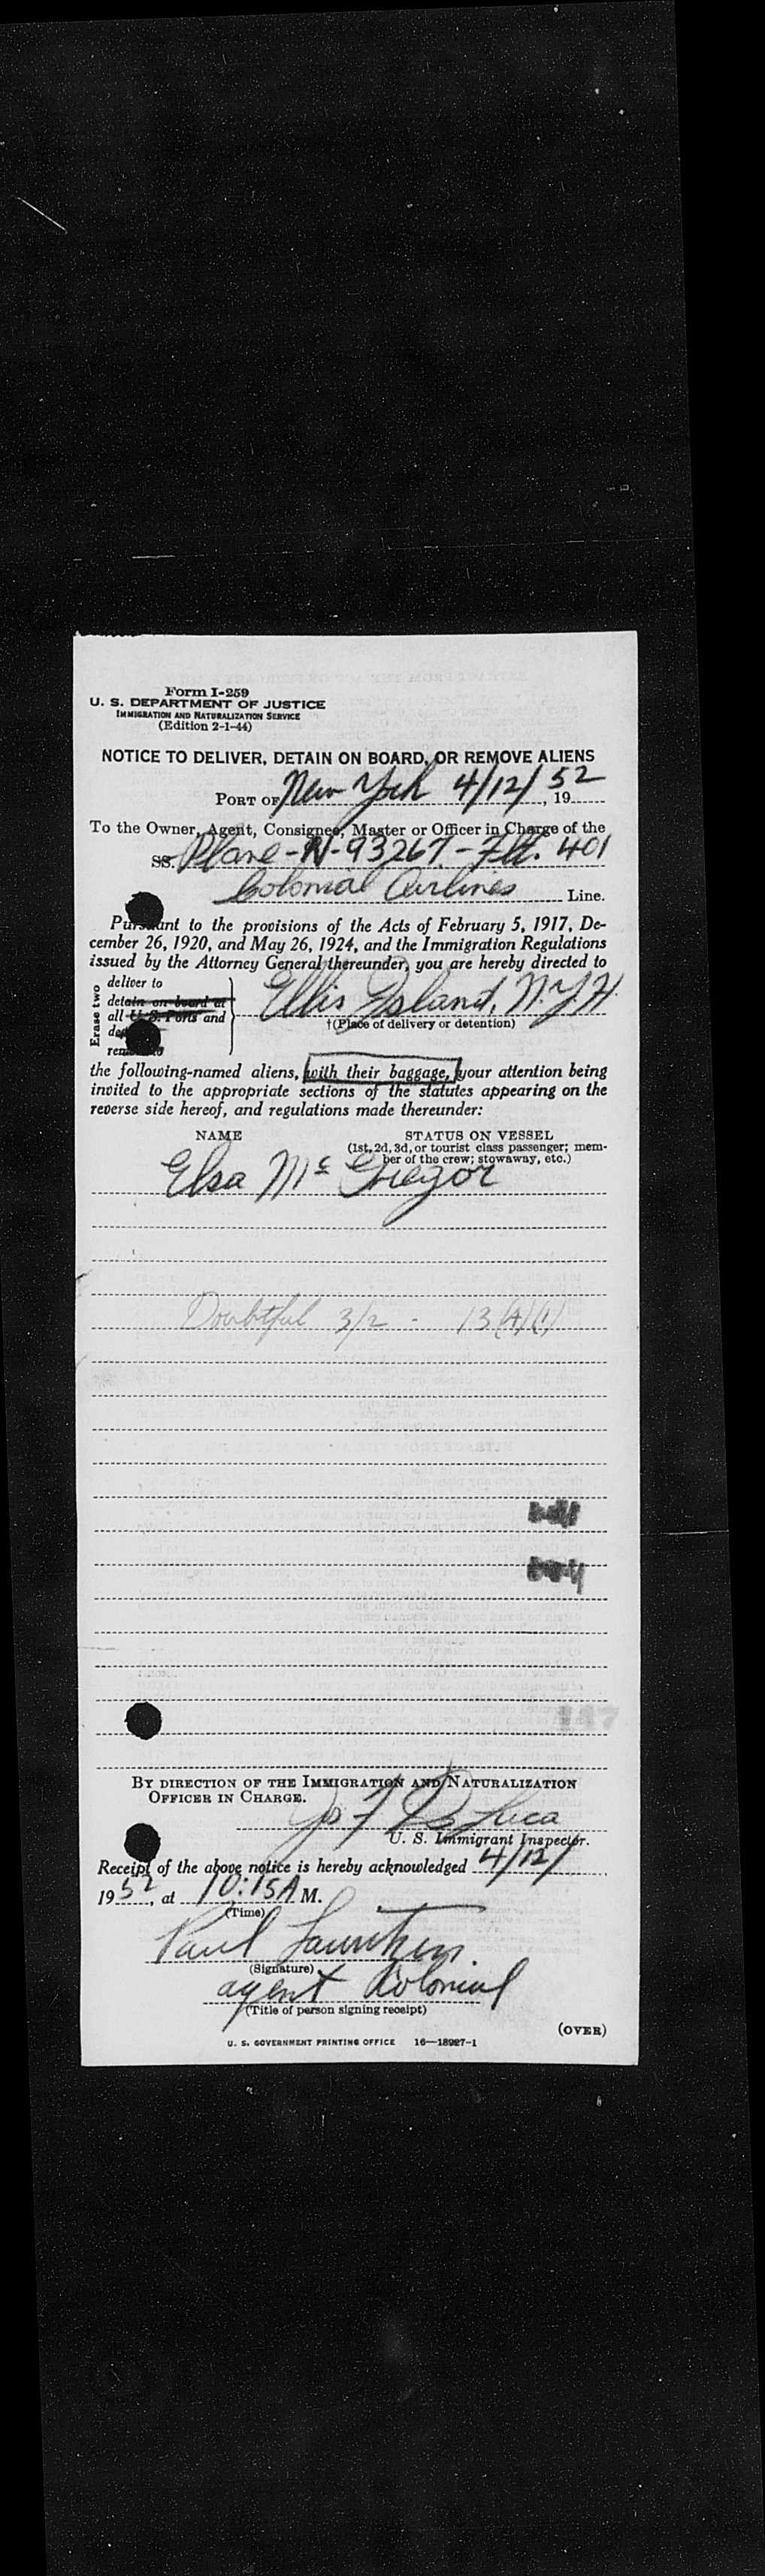 Form I-259
U. S. DEPARTMENT OF JUSTICE
IMMIGRATION AND NATURALIZATION SERVICE
(Edition 2-1-44)
NOTICE TO DELIVER, DETAIN ON BOARD, OR REMOVE ALIENS
PORT OF New York 4/12/52, 19
To the Owner, Agent, Consignee, Master or Officer in Charge of the
SS. Plane-N-93267-Flt. 401
Colonial Airlines Line.
Pursuant to the provisions of the Acts of February 5, 1917, De-
cember 26, 1920, and May 26, 1924, and the Immigration Regulations
issued by the Attorney General thereunder, you are hereby directed to
Erase two
deliver to
detain on board at
all U. S. Ports and
Ellis Island, N.Y.H.
†(Place of delivery or detention)
the following-named aliens, with their baggage, your attention being
invited to the appropriate sections of the statutes appearing on the
reverse side hereof, and regulations made thereunder:
NAME STATUS ON VESSEL
(1st, 2d, 3d, or tourist class passenger; mem-
ber of the crew; stowaway, etc.)
Elsa McGregor
Doubtful 3/2 - 13(A)(1)
147
BY DIRECTION OF THE IMMIGRATION AND NATURALIZATION
OFFICER IN CHARGE.
De Luca
U. S. Immigrant Inspector.
Receipt of the above notice is hereby acknowledged 4/12/
1952, at 10:15 A M.
(Time)
Paul
(Signature)
agent Colonial
(Title of person signing receipt)
(OVER)
U. S. GOVERNMENT PRINTING OFFICE 16—18927-1